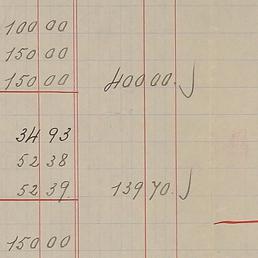 100 00
150 00
150 00 400 00. √
34 93
52 38
52 39 139 70. √
150 00